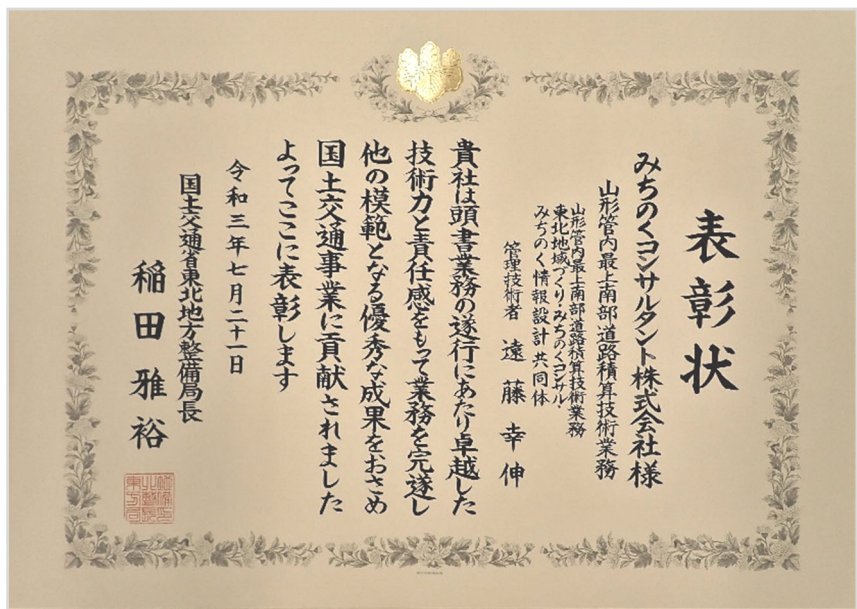 表彰状
みちのくコンサルタント株式会社様
山形管内最上南部道路積算技術業務
山形管内最上南部道路積算技術業務
東北地域づくり・みちのくコンサル・
みちのく情報設計共同体
管理技術者 遠藤幸伸
貴社は頭書業務の遂行にあたり卓越した
技術力と責任感をもって業務を完遂し
他の模範となる優秀な成果をおさめ
国土交通事業に貢献されました
よってここに表彰します
令和三年七月二十一日
国土交通省東北地方整備局長
稲田雅裕